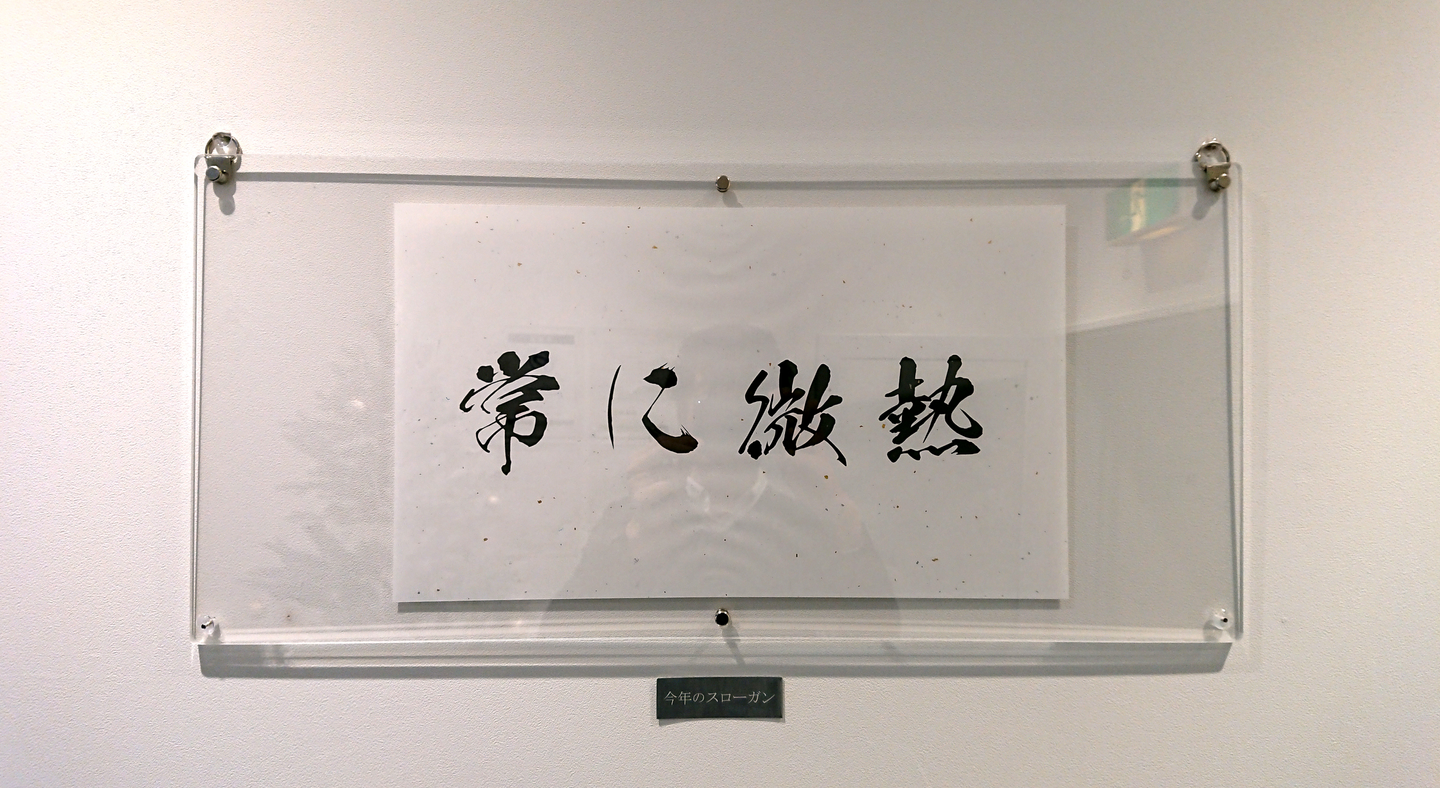 常に微熱
今年のスローガン